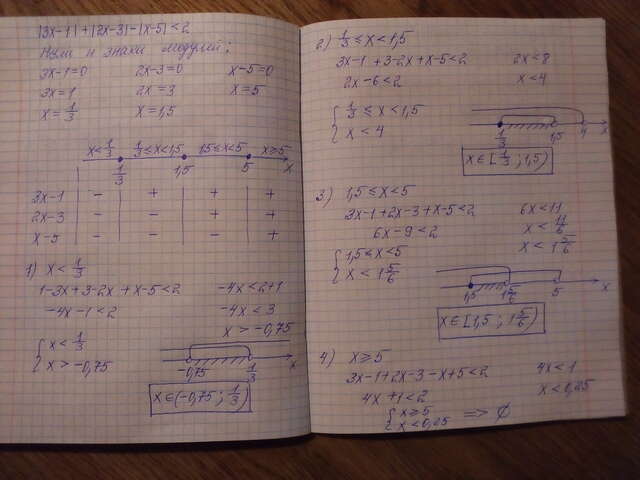 |3x-1|+|2x-3|-|x-5|<2
Нули и знаки модулей:
3x-1=0 2x-3=0 x-5=0
3x=1 2x=3 x=5
x=1/3 x=1,5
x<1/3 1/3≤x<1,5 1,5≤x<5 x≥5
1/3 1,5 5 x
3x-1 - + + +
2x-3 - - + +
x-5 - - - +
1) x<1/3
1-3x+3-2x+x-5<2 -4x<2+1
-4x-1<2 -4x<3
x>-0,75
{ x<1/3
{ x>-0,75
-0,75 1/3 x
x∈(-0,75; 1/3)
2) 1/3≤x<1,5
3x-1+3-2x+x-5<2 2x<8
2x-6<2 x<4
{ 1/3≤x<1,5
{ x<4
1/3 1,5 4 x
x∈[1/3; 1,5)
3) 1,5≤x<5
3x-1+2x-3+x-5<2 6x<11
6x-9<2 x<11/6
x<1 5/6
{ 1,5≤x<5
{ x<1 5/6
1,5 1 5/6 5 x
x∈[1,5; 1 5/6)
4) x≥5
3x-1+2x-3-x+5<2 4x<1
4x+1<2 x<0,25
{ x≥5
{ x<0,25 => ∅